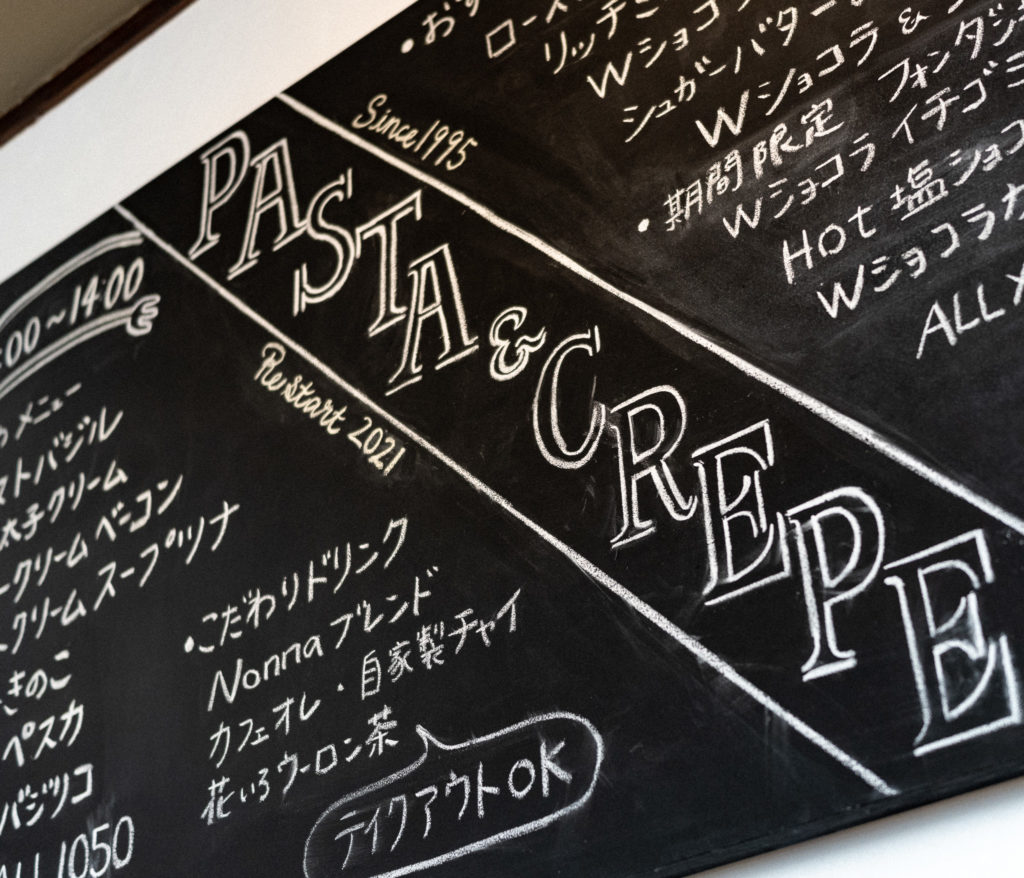 Since 1995
PASTA & CREPE
Restart 2021
・おす
ロース
リッチ
Wショコ
シュガーバター
Wショコラ &
・期間限定 フォンダン
Wショコラ イチゴ
Hot 塩ショコ
Wショコラカ
ALL
:00~14:00
メニュー
マトバジル
太子クリーム
ークリームベーコン
クリームスープツナ
きのこ
ペスカ
バジツコ
ALL 1050
・こだわりドリンク
Nonnaブレンド
カフェオレ・自家製チャイ
花いろウーロン茶
テイクアウトOK